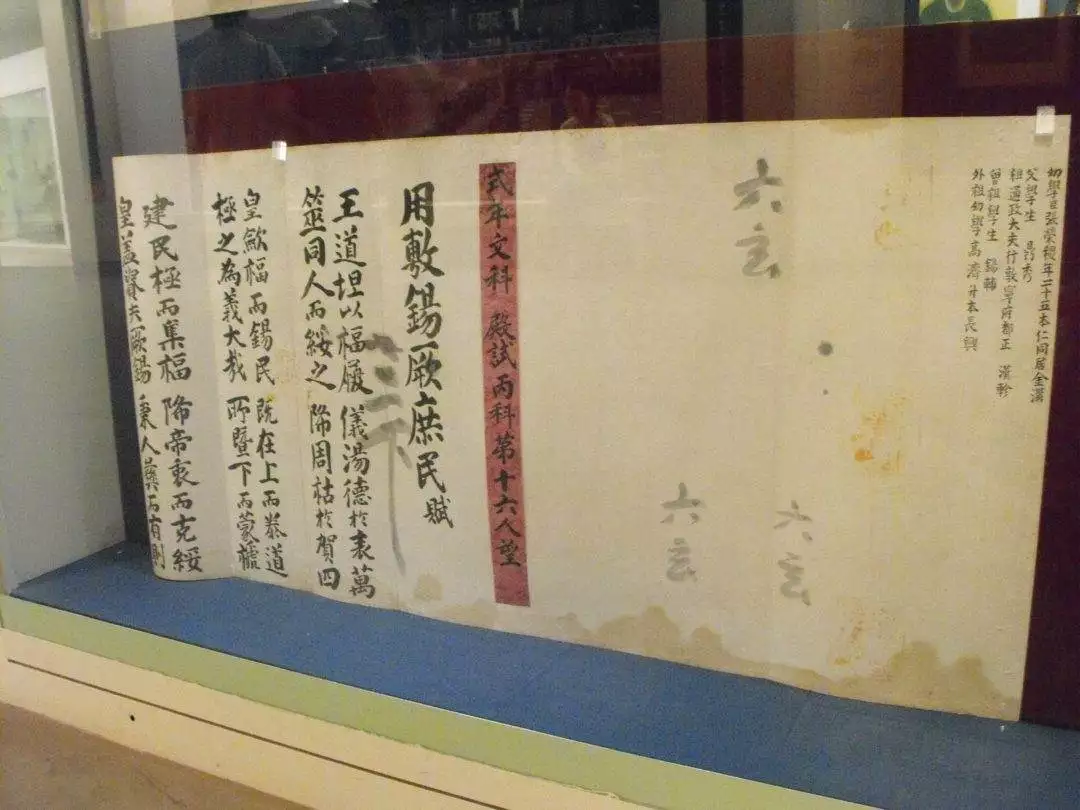 幼學臣張榮稷年二十五本仁同居金溝
父學生 昌秀
祖通政大夫行敦寧府都正 漢軫
曾祖學生 錫輔
外祖幼學高濟升本長興
六玄
六玄
六玄
式年文科 殿試丙科第十六人望
用敷錫厥庶民賦
三下
王道坦以福履 儀湯德於表萬
筮同人而綏之 降周祜於賀四
皇歛福而錫民 既在上而恭道
極之為義大哉 所暨下而蒙
建民極而集福 降帝衷而克綏
皇蓋賢夫厥錫 秉人彝而有則